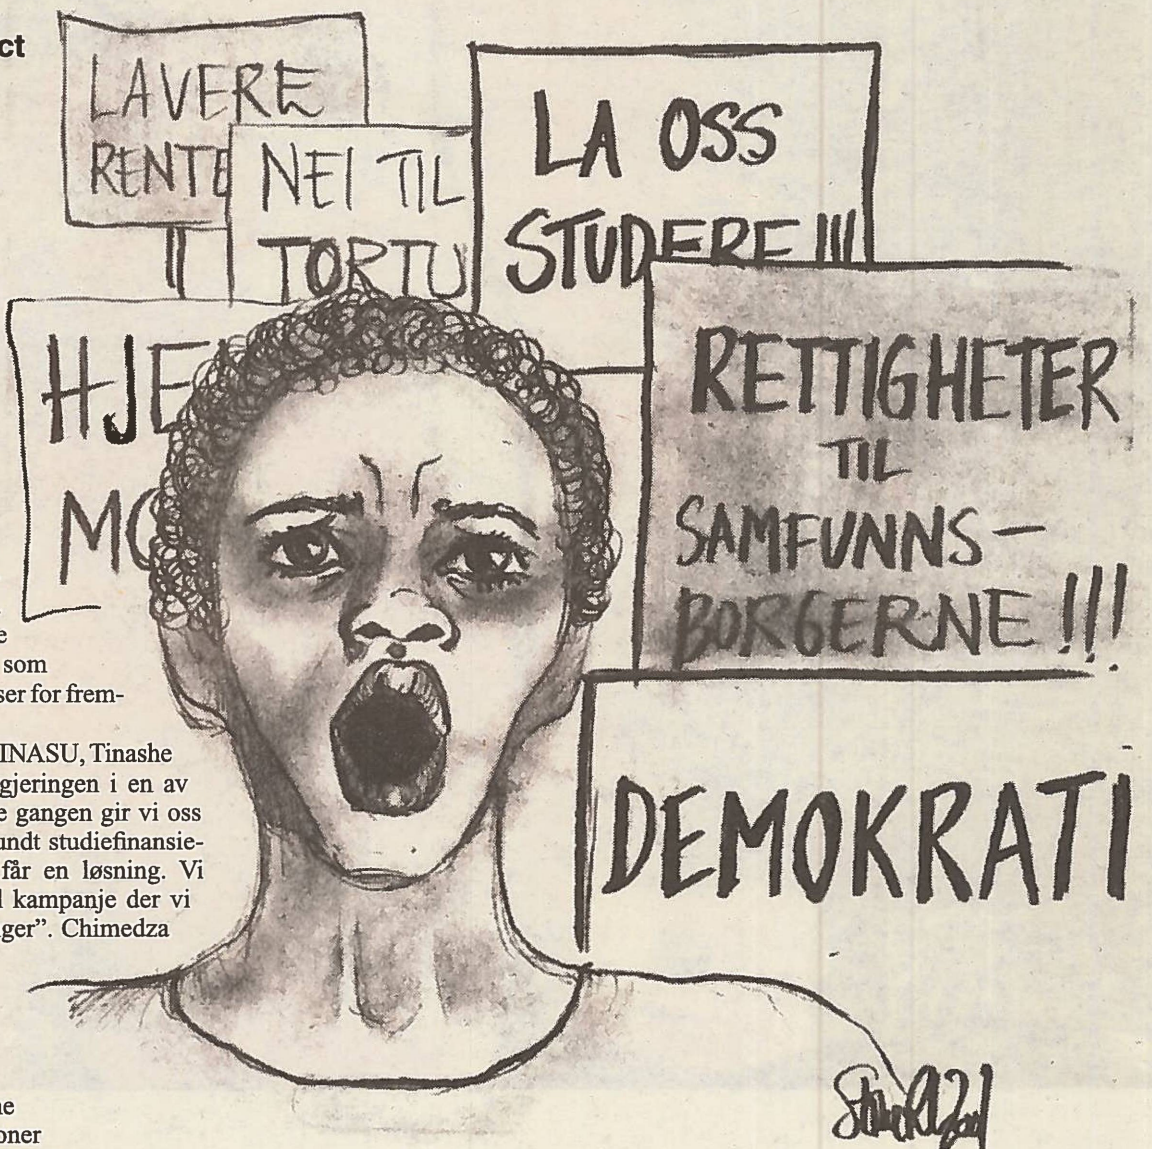 ct
LAVERE
RENTE
NEI TIL
TORTU
LA OSS
STUDERE !!!
HJE
MO
RETTIGHETER
TIL
SAMFUNNS-
BORGERNE !!!
DEMOKRATI
e
som
ser for frem-
INASU, Tinashe
gjeringen i en av
e gangen gir vi oss
undt studiefinansie-
får en løsning. Vi
l kampanje der vi
ger”. Chimedza
ne
oner